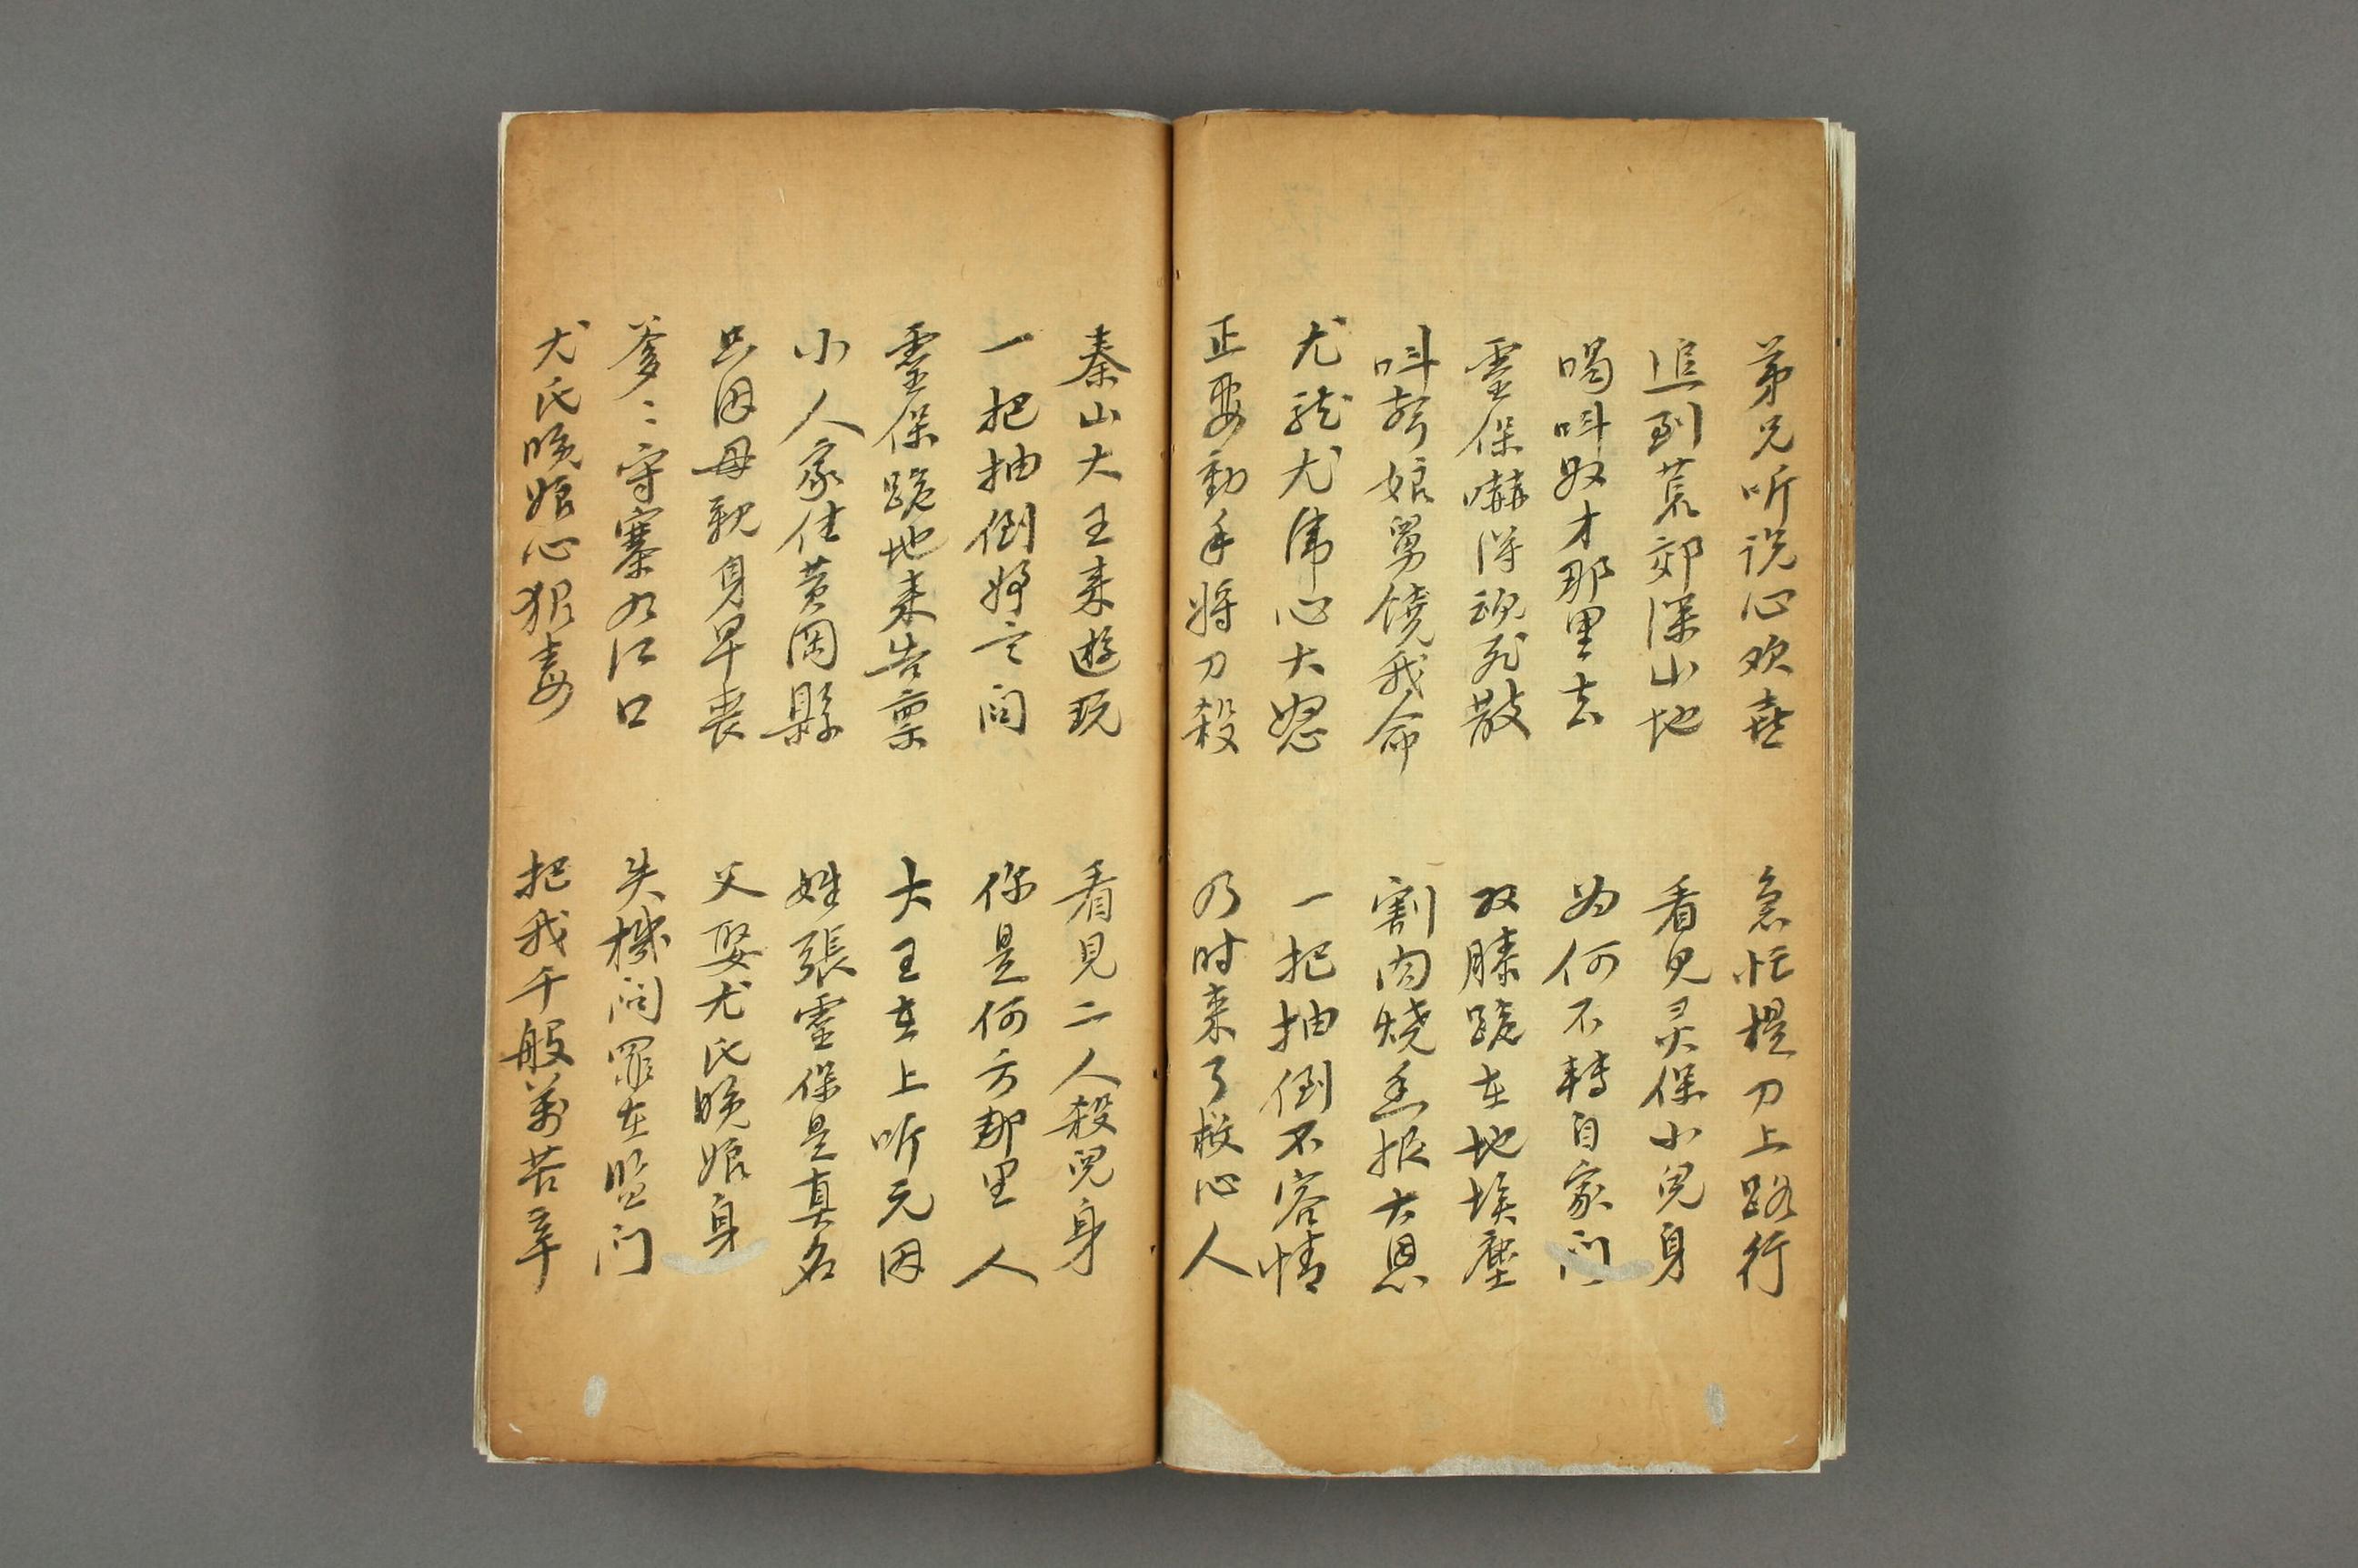 弟兄听说心欢喜　急忙提刀上路行
追到荒郊深山地　看见灵保小兒身
喝呌奴才那里去　为何不轉自家门
霊保嚇得魂死散　双膝跪在地埃塵
呌声娘舅饶我命　割肉燒香报大恩
尤龙尤虎心大怒　一把抽倒不容情
正要動手將刀殺　乃时来了救心人
秦山大王来遊玩　看見二人殺兒身
一把抽倒好言问　你是何方那里人
霊保跪地来告禀　大王在上听元因
小人家住黄岡縣　姓張霊保是真名
只因母親身早丧　父娶尤氏晚娘身
爹〻守寨九江口　失機问罪在监门
尤氏晚娘心狠毒　把我千般萬苦辛